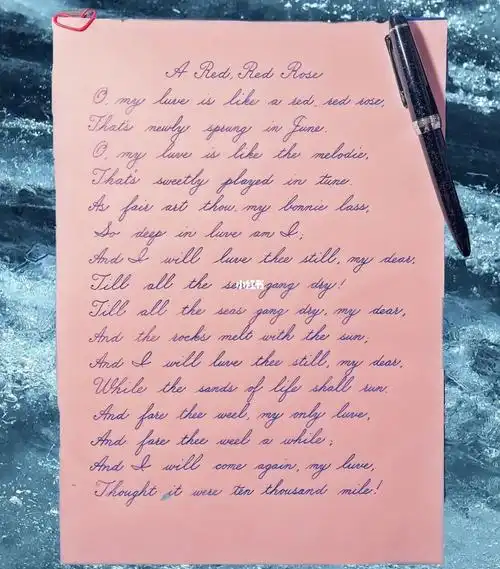 A Red, Red Rose
O, my luve is like a red, red rose,
That's newly sprung in June.
O, my luve is like the melodie,
That's sweetly played in tune.
As fair art thou, my bonnie lass,
So deep in luve am I;
And I will luve thee still, my dear,
Till all the seas gang dry!
Till all the seas gang dry, my dear,
And the rocks melt with the sun;
And I will luve thee still, my dear,
While the sands of life shall run.
And fare thee weel, my only luve,
And fare thee weel a while;
And I will come again, my luve,
Thought it were ten thousand mile!
小红书